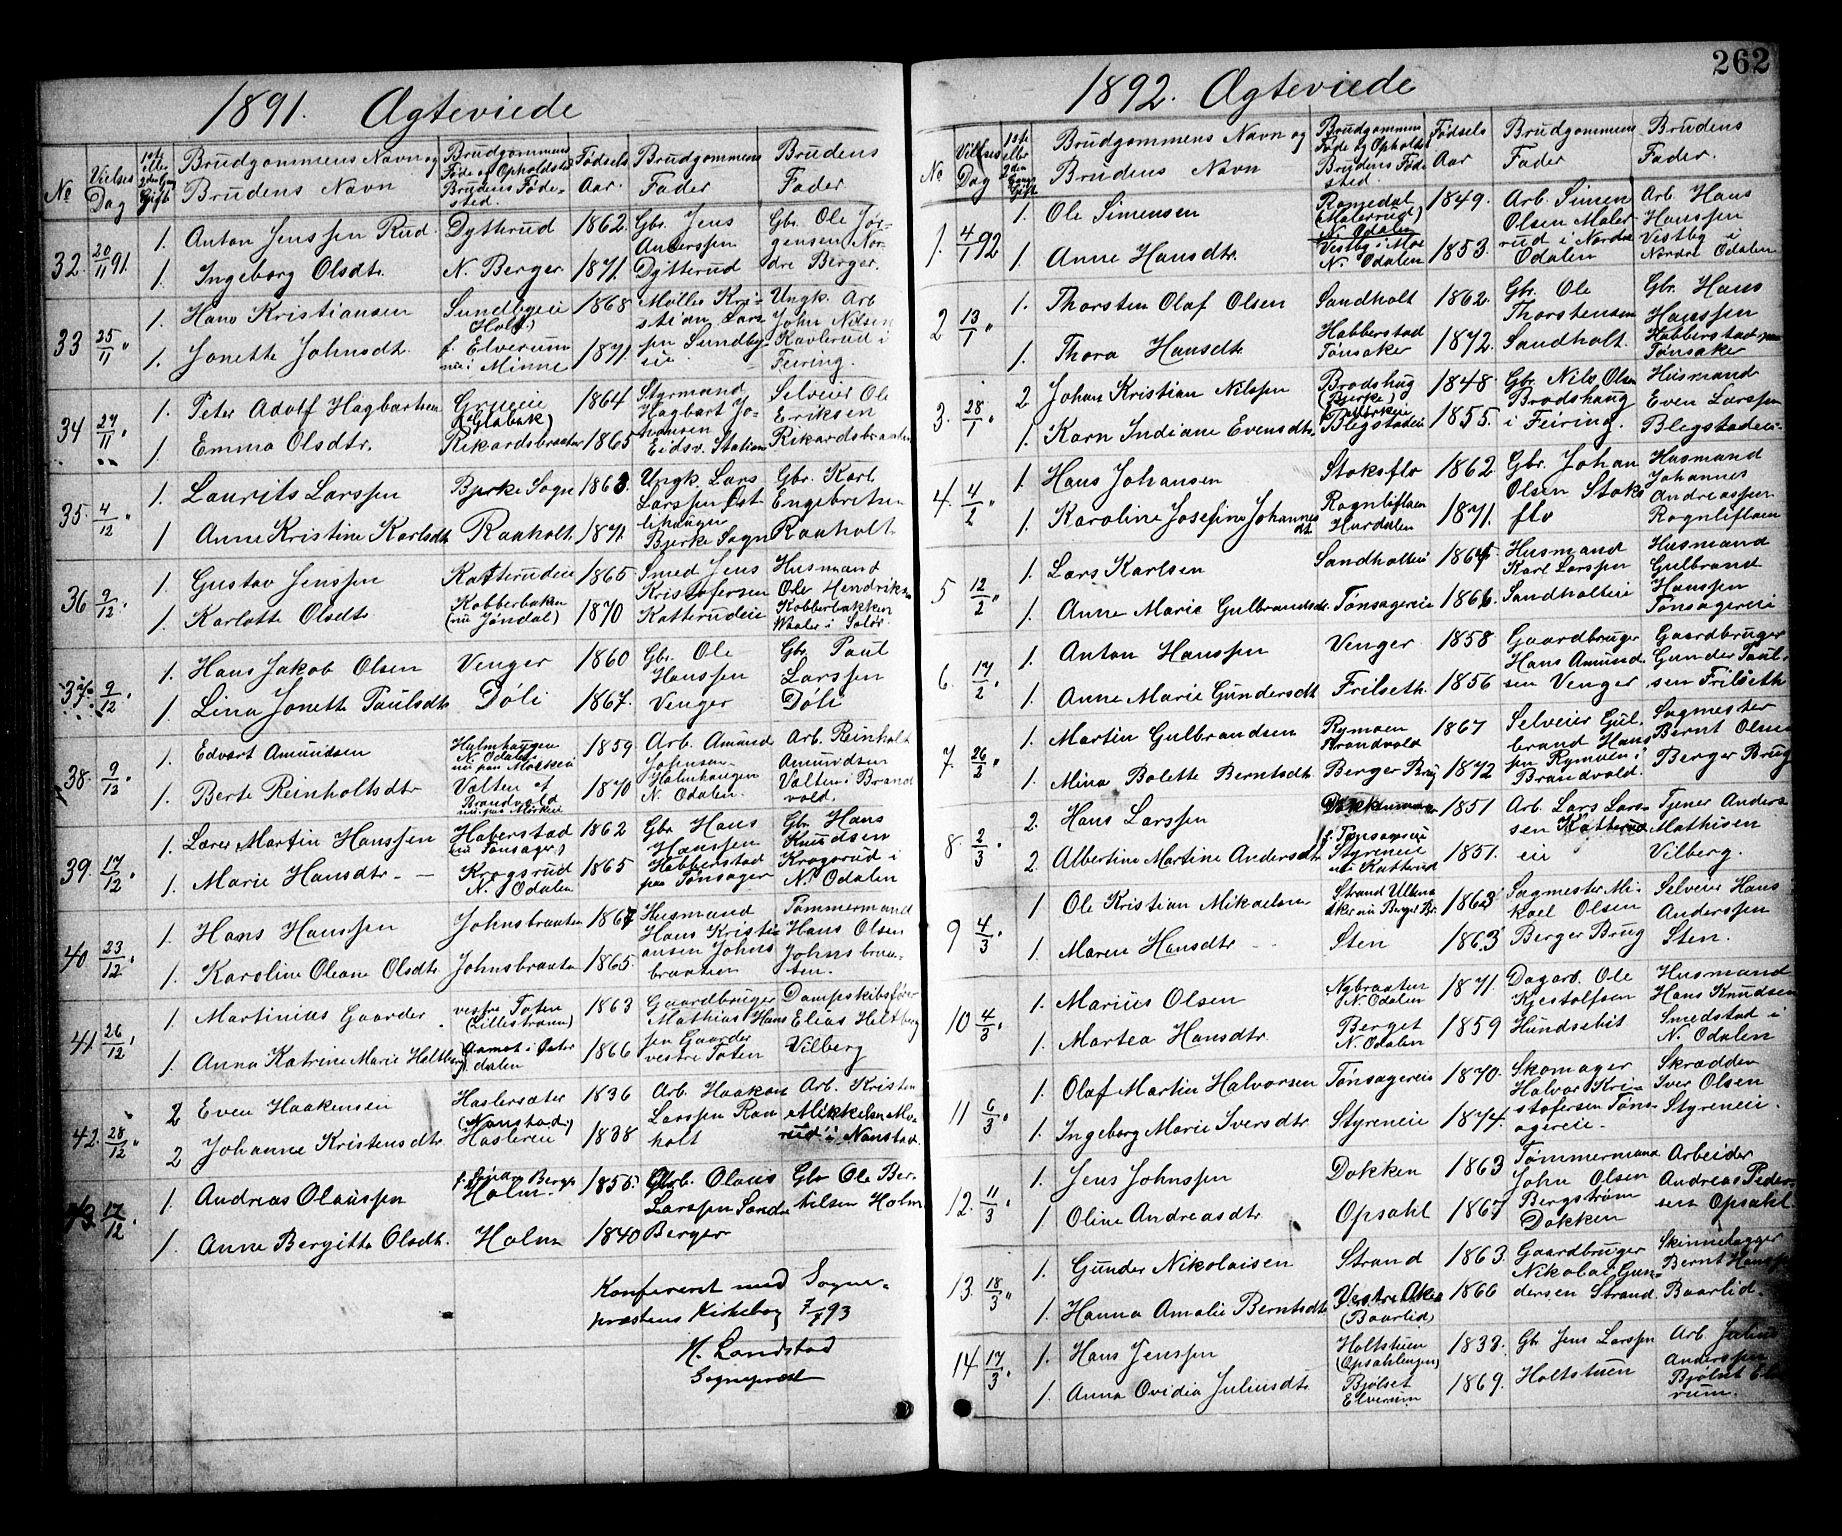 262
1891. Ægteviede
No
Vielses Dag
1ste eller 2den Gang Gift
Brudgommens Navn og Brudens Navn
Brudgommens Føde og Opholdsted Brudens Fødested.
Fødsels Aar.
Brudgommens Fader
Brudens Fader
32. 20/11 91.
1. Anton Jenssen Rud. Dytterud 1862. Gbr. Jens Anderssen Dytterud
Gbr. Ole Jørgensen Nordre Berger.
1. Ingeborg Olsdtr. N. Berger 1871.
33 25/11 "
1. Hans Kristiansen Sundbyeie 1868 Møller Kristian Larssen Sundbyeie
Ungk. Arb John Nilsen Kavlerud i Feiring.
1. Jonette Johnsdt. f. Elverum nu i Minne 1871.
34 27/11 "
1. Peter Adolf Hagbartsen Grueie 1864 Styrmand Hagbart Johansen Eidsv. Station
Selveier Ole Eriksen Rikardsbraaten
1. Emma Olsdtr. Rikardsbraaten 1865
35. 4/12 "
1. Laurits Larssen Bjerke Sogn 1868. Ungk. Lars Larssen Østlihaugen Bjerke Sogn
Gbr. Karl Engebretsen Raaholt
1 Anne Kristine Karlsdtr Raaholt 1871.
36 9/12 "
1. Gustav Jenssen Katterudeie 1865 Smed Jens Kristofersen Katterudeie
Husmand Ole Hendriksen Kobberbakken Vaaler i Solør.
1. Karlotte Olsdtr Kobberbakken (nu Jøndal) 1870
37. 9/12 "
1. Hans Jakob Olsen Venger 1860 Gbr. Ole Hanssen Venger
Gbr. Paul Larssen Døli
1. Lina Jonette Paulsdtr Døli 1867.
38. 9/12 "
1. Edvart Amundsen Halmhaugen N. Odalen nu paa Mørkeie 1859 Arb. Amund Johnsen Halmhaugen N. Odalen.
Arb. Reinholt Amundsen Valten i Brandvold.
1. Berte Reinholtsdtr Valten af Brandvold nu paa Mørkeie 1870
39. 17/12 "
1. Lærer Martin Hanssen Haberstad nu Tønsager) 1862 Gbr. Hans Hanssen Habberstad paa Tønsager
Gbr. Hans Knudsen Krogsrud i N. Odalen
1. Marie Hansdtr. - Krogsrud N. Odalen 1865
40 23/12 "
1. Hans Hanssen Johnsbraaten 1867 Husmand Hans Kristiansen Johnsbraaten
Tømmermand Hans Olsen Johnsbraaten.
1. Karoline Oleane Olsdtr Johnsbraaten 1865.
41. 26/12 "
1. Martinius Gaarder vestre Toten (Lillestrøm) 1863 Gaardbruger Mathias Hanssen Gaarder vestre Toten
Dampskibsfører Elias Heltberg Vilberg
1. Anna Katrine Marie Heltberg Aamot i Østerdalen 1866
42. 28/12 "
2 Even Haakensen Haslersæter (Nanstad) 1836 Arb. Haakon Larssen Raaholt
Arb. Kristen Mikkelsen Morud i Nanstad.
2 Johanne Kristensdtr. Haslereie 1838
43. 17/12 "
1. Andreas Olaussen Holm. 1855. Gbr. Olaus Larssen Søndre Berger
Gbr Ole Bertilsen Holm
1. Anne Bergitte Olsdtr. Holm 1840
Konfereret med Sogneprestens Kirkebog 7/93
H. Landstad
Sogneprest
1892. Ægteviede
No
Vielses Dag
1ste eller 2den Gangs Gift
Brudgommens Navn og Brudens Navn
Brudgommens Føde og Opholdst Brudens Fødested
Fødsels Aar
Brudgommens Fader
Brudens Fader.
1. 4/1 92
1. Ole Simensen Romedal (Malerrud) N. Odalen 1849. Arb. Simen Olsen Malerrud i Nordre Odalen
Arb. Hans Hanssen Vestby i Nordre Odalen
1. Anne Hansdtr. Vestby i Moe N. Odalen 1853.
2 13/1 "
1. Thorsten Olaf Olsen Sandholt 1862. Gbr. Ole Thorstensen Sandholt.
Gbr. Hans Hanssen Habberstad paa Tønsaker
1. Thora Hansdtr Habberstad Tønsaker 1872.
3. 28/1 "
2 Johan Kristian Nilssen Brodshug (Bjerke) 1848. Gbr. Nils Olsen Brodshaug i Feiring.
Husmand Even Larssen Blegstadeie
1. Karn Indiane Evensdtr. Blegstadeie 1855.
4. 4/2 "
1. Hans Johansen Stoksflo 1862. Gbr. Johan Olsen Stoksflo
Husmand Johannes Andreassen Rognliflaen
1. Karoline Josefine Johannesdt. Rognliflaen Hurdalen 1871.
5 12/2 "
1. Lars Karlsen Sandholteie 1864 Husmand Karl Larssen Sandholteie
Husmand Gulbrand Hanssen Tønsagereie
1. Anne Marie Gulbrandsdtr. Tønsagereie 1866
6. 17/2 "
1. Anton Hanssen Venger 1858 Gaardbruger Hans Amundsen Venger
Gaardbruger Gunder Paulsen Frilseth
1. Anne Marie Gundersdtr Frilseth. 1856
7. 26/2 "
1. Martin Gulbrandsen Rymoen Brandvold 1867 Selveier Gulbrand Hanssen Rymoen i Brandvold.
Sagmester Bernt Olsen Berger Brug
1. Mina Bolette Berntsdtr. Berger Brug 1872
8. 2/3 "
2. Hans Larssen 1851 Arb. Lars Larssen Katterudeie
Tjener Anders Mathisen Vilberg.
2. Albertine Martine Andersdtr f. Tønsagereie Styreneie nu Katterud 1851.
9 4/3 "
1 Ole Kristian Mikaelsen Strand Ullensaker nu Berger Br. 1863 Sagmester Mikael Olsen Berger Brug
Selveier Hans Anderssen Sten.
1. Maren Hansdtr - Sten 1863
10 4/3 "
1. Marius Olsen Nybraaten N. Odalen 1871. Dagarb. Ole Kjestolfsen Hundsebit
Husmand Hans Knudsen Smedstad i N. Odalen
1. Martea Hansdtr. Berget N. Odalen 1859
11 6/3 "
1. Olaf Martin Halvorsen Tønsagereie 1870. Skomager Halvor Kristofersen Tønsagereie.
Skrædder Iver Olsen Styreneie
1. Ingeborg Marie Iversdtr Styreneie 1874.
12. 11/3 "
1. Jens Johnssen Dokken 1863 Tømmermand John Olsen Bergstrøm Dokken
Arbeider Andreas Pedersen Opsahl
1 Oline Andreasdtr Opsahl 1867
13. 18/3 "
1. Gunder Nikolaisen Strand 1863. Gaardbruger Nikolai Gundersen Strand.
Skindelægger Bernt Hanssen Baarlid.
1. Hanna Amalie Berntsdtr Vestre Aker (Baarlid) 1866
14. 17/3 "
1. Hans Jenssen Holtstuen (Opsahlengen) 1833. Gbr Jens Larssen Holtstuen
Arb. Julius Anderssen Bjølset Elverum.
1. Anna Ovidia Juliusdtr Bjølset Elverum 1869.